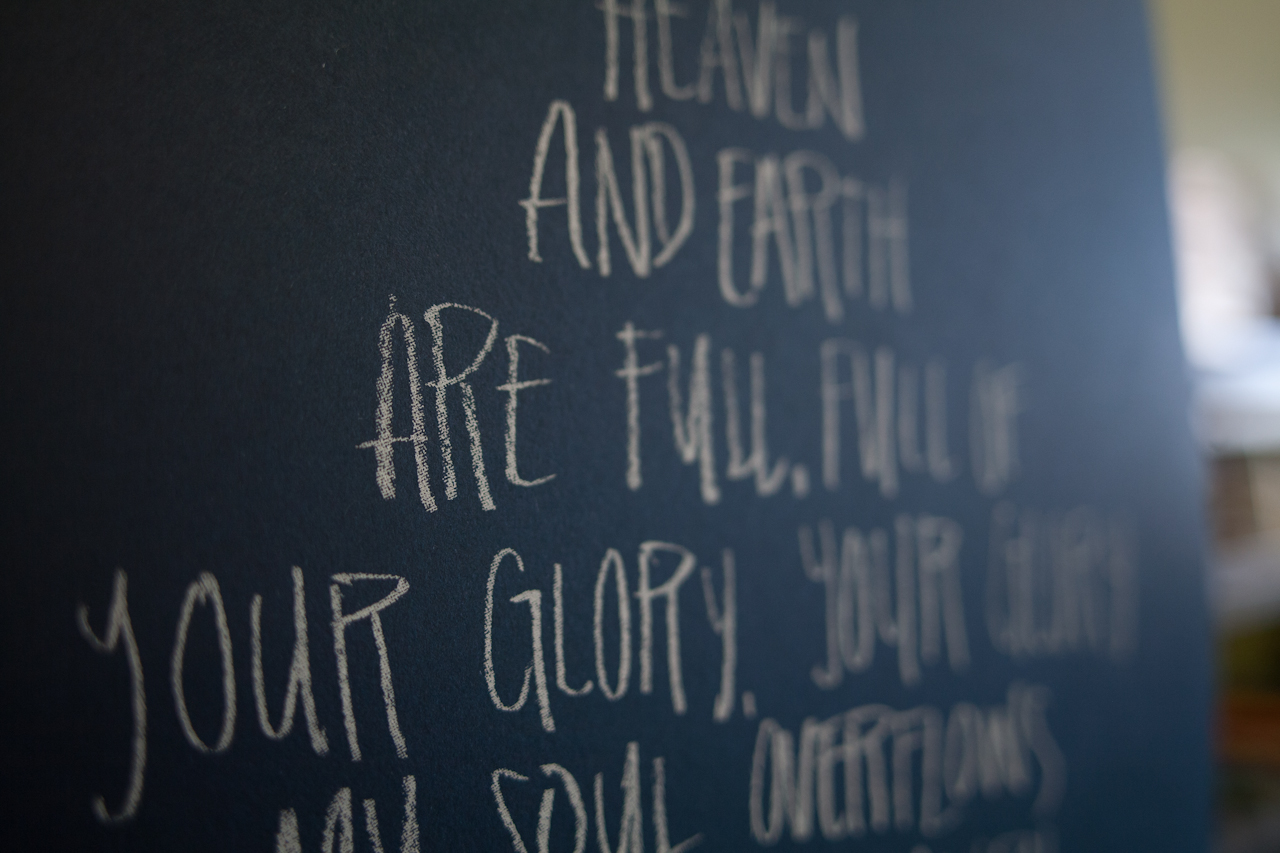 HEAVEN
AND EARTH
ARE FULL, FULL OF
YOUR GLORY. YOUR GLORY
MY SOUL OVERFLOWS